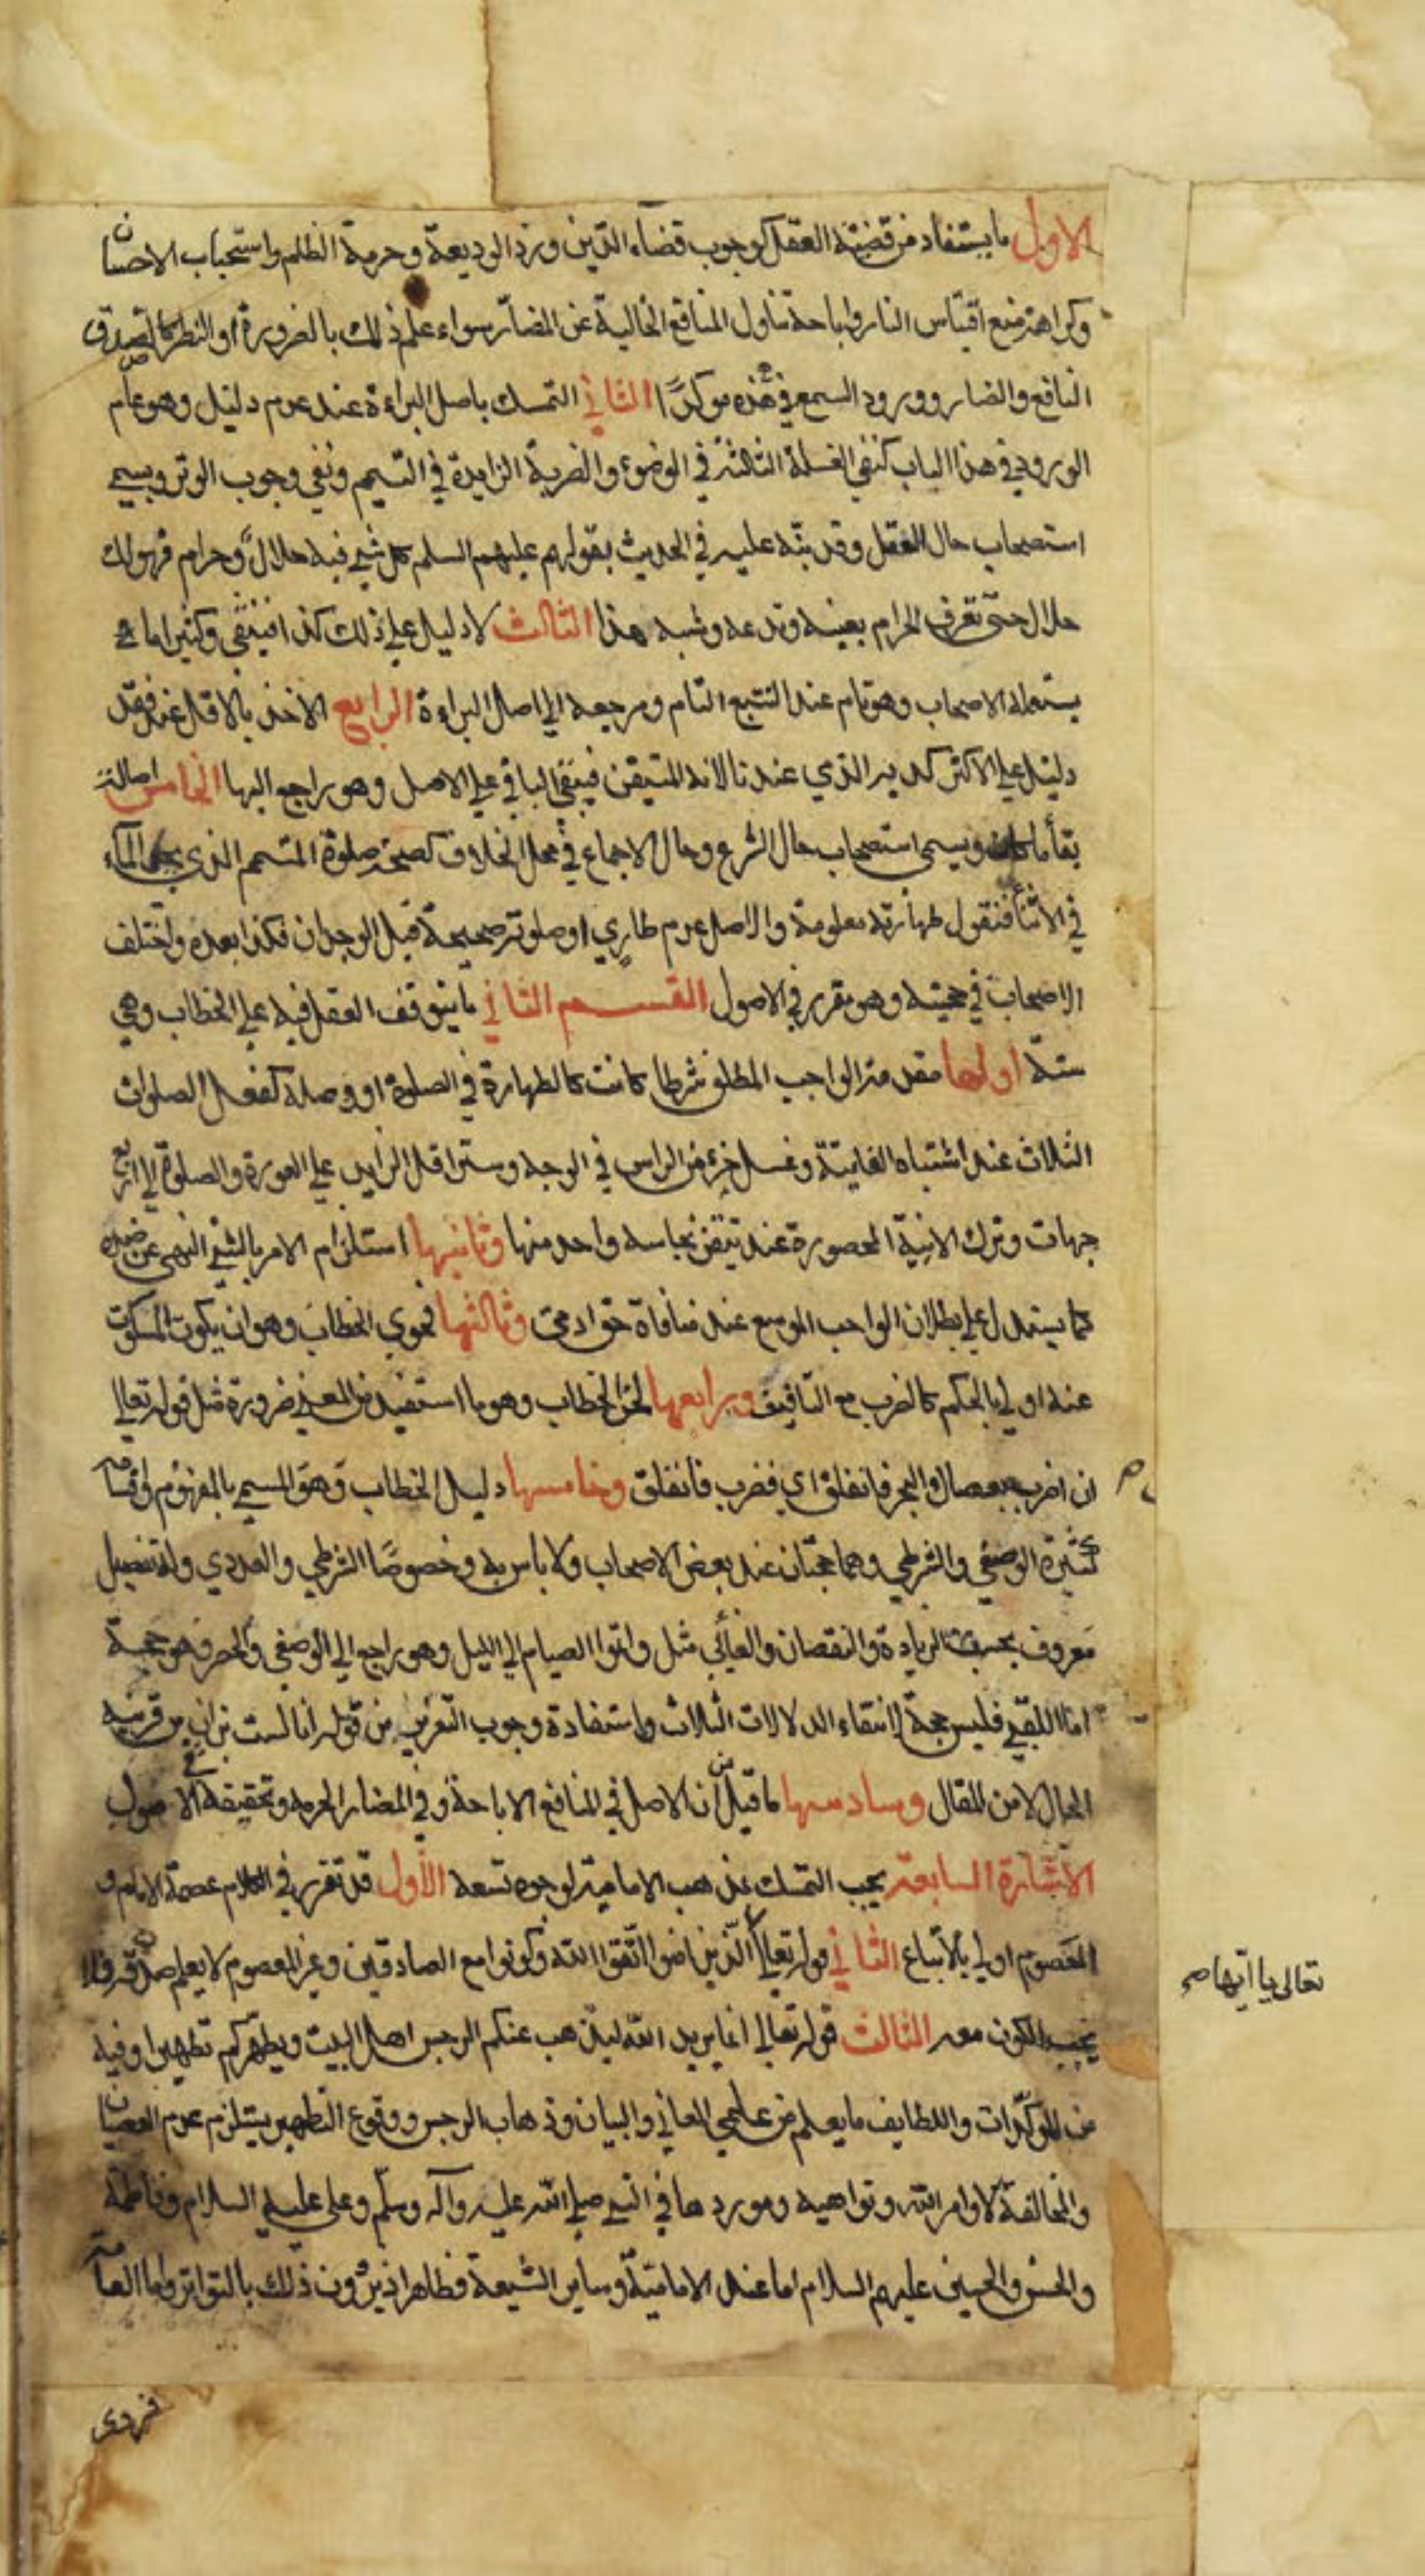 الاول ما يستفاد من قضية العقل كوجوب قضاء الدين ورد الوديعة وحرمة الظلم واستحباب الاحسان
وكراهة منع اقتباس النار واباحة تناول المنافع الخالية عن المضار سواء علم ذلك بالضرورة او النظر كالصدق
النافع والضار وورود السمع في هذه موكدا الثاني التمسك باصل البراءة عند عدم دليل وهو عام
الورود في هذا الباب كنفي الغسلة الثالثة في الوضوء والضربة الزايدة في التيمم ونفي وجوب الوتر ويسمى
استصحاب حال العقل وقد نبه عليه في الحديث بقولهم عليهم السلم كل شيء فيه حلال وحرام فهو لك
حلال حتى تعرف الحرام بعينه وتدعه وشبه هذا الثالث لا دليل على ذلك كذا فينتفي وكثيرا ما
يستعمله الاصحاب وهو تام عند التتبع التام ومرجعه الى اصل البراءة الرابع الاخذ بالاقل عند فقد
دليل على الاكثر كدية الذمي عندنا لانه المتيقن فيبقى الباقي على الاصل وهو راجع اليها الخامس اصالة
بقأ ما كان ويسمى استصحاب حال الشرع وحال الاجماع في محل الخلاف كصحة صلوة المتيمم الذي يجد الماء
في الاثنأ فنقول طهارته معلومة والاصل عدم طاري او صلوته صحيحة قبل الوجدان فكذا بعده واختلف
الاصحاب في حجيته وهو مقرر في الاصول القسم الثاني ما يتوقف العقل فيه على الخطاب وهي
ستة اولها مقدمة الواجب المطلق شرطا كانت كالطهارة في الصلوة او وصلة كفعل الصلوات
الثلاث عند اشتباه الفايتة وغسل جزء من الراس في الوجه وستر اقل الزايد على العورة والصلوة الى اربع
جهات وترك الانية المحصورة عند تيقن نجاسة واحد منها وثانيها استلزام الامر بالشيء النهي عن ضده
كما يستدل على بطلان الواجب الموسع عند منافاة حق ادمي وثالثها فحوى الخطاب وهو ان يكون المسكوت
عنه اولى بالحكم كالضرب مع التافيف ورابعها لحن الخطاب وهو ما استفيد من المعنى ضرورة مثل قوله تعالى
ان اضرب بعصاك البحر فانفلق اي فضرب فانفلق وخامسها دليل الخطاب وهو المسمى بالمفهوم واقسامه
كثيرة الوصفي والشرطي وهما حجتان عند بعض الاصحاب ولا باس به وخصوصا الشرطي والعددي وله تفصيل
معروف بحسب الزيادة والنقصان والغائي مثل واتموا الصيام الى الليل وهو راجع الى الوصفي والحصر وهو حجة
اما اللقبي فليس حجة لانتفاء الدلالات الثلاث واستفادة وجوب التعزير من قوله انا لست بزان من قرينة
الحال لا من المقال وسادسها ما قيل ان الاصل في المنافع الاباحة وفي المضار الحرمة وتحقيقه في الاصول
الاشارة السابعة يجب التمسك بمذهب الامامية لوجوه تسعة الأول قد تقرر في الكلام عصمة الامام و
المعصوم اولى بالاتباع الثاني قوله تعالى الذين امنوا اتقوا الله وكونوا مع الصادقين وغير المعصوم لا يعلم صدقه فلا
تعالى يا ايها صح
يجب الكون معه الثالث قوله تعالى انما يريد الله ليذهب عنكم الرجس اهل البيت ويطهركم تطهيرا وفيه
من الموكدات واللطايف ما يعلم من علمي المعاني والبيان وذهاب الرجس ووقوع التطهير يستلزم عدم العصيان
والمخالفة لاوامر الله ونواهيه وموردها في النبي صلى الله عليه واله وسلم وعلي عليه السلام وفاطمة
والحسن والحسين عليهم السلام اما عند الامامية وساير الشيعة فظاهر اذ يروون ذلك بالتواتر واما العامة
فروى